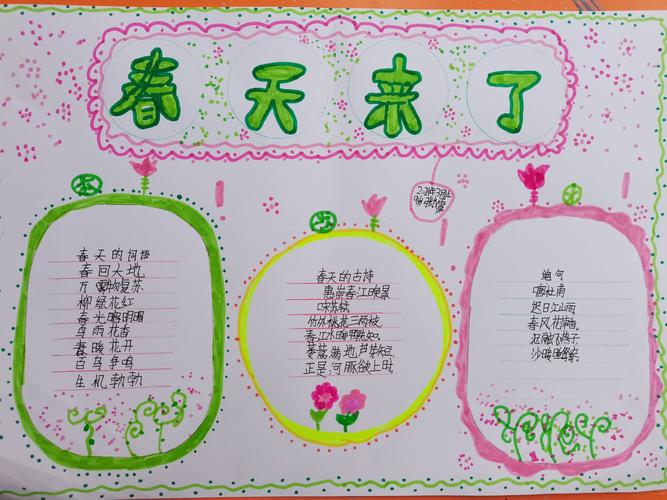 春天来了
春天的词语
春回大地
万物复苏
柳绿花红
春光明
鸟雨花香
春暖花开
百鸟争鸣
生机勃勃
春天的古诗
惠崇春江晚景
宋苏轼
竹外桃花三两枝
春江水暖鸭先知。
蒌蒿满地芦芽短
正是河豚欲上时
绝句
唐杜甫
迟日江山丽
春风花草香
泥融飞燕子
沙暖睡鸳鸯